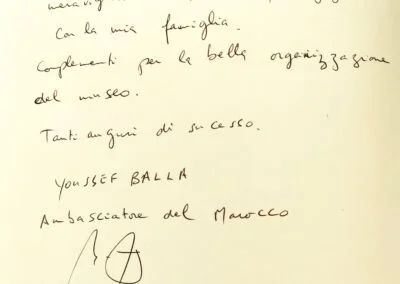 Con la mia famiglia.
Complementi per la bella organizzazione
del museo.
Tanti auguri di successo.
YOUSSEF BALLA
Ambasciatore del Marocco